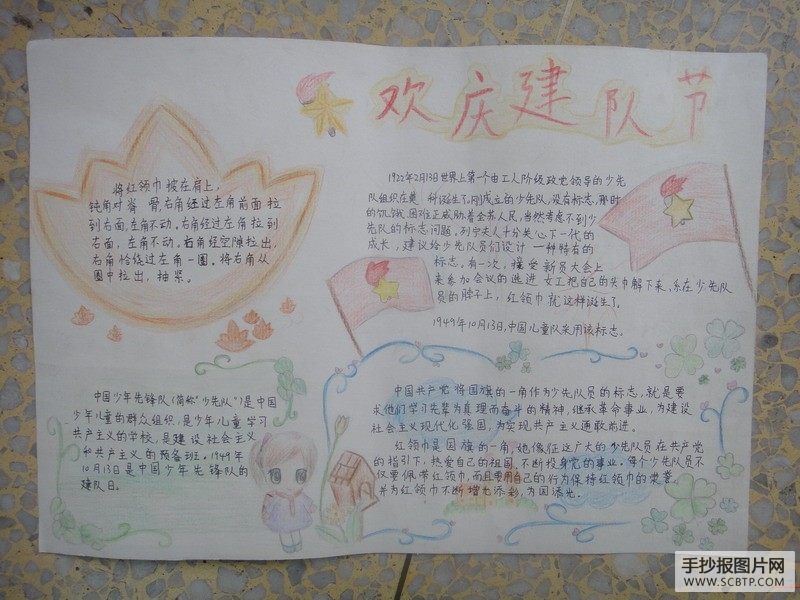 欢庆建队节
将红领巾披在肩上,
钝角对脊 骨,右角经过左角前面 拉
到右面,左角不动。右角经过左角拉到
右面,左角不动。右角经空隙拉出,
右角恰绕过左角一圈。将右角从
圈中拉出,抽紧。
1922年2月13日世界上第一个由工人阶级政党领导的少先
队组织在莫 科诞生了,刚成立的少先队,没有标志,那时
的饥饿,困难正威胁着全苏人民,当然考虑不到少
先队的标志问题。列宁夫人十分关心下一代的
成长,建议给少先队员们设计 一种特有的
标志。有一次,接受 新员大会上
来参加会议的先进 女工把自己的头巾解下来,系在少先队
员的脖子上,红领巾就这样诞生了。
1949年10月13日,中国儿童队采用该标志。
中国少年先锋队(简称"少先队")是中国
少年儿童的群众组织,是少年儿童学习
共产主义的学校,是建设社会主义
和共产主义的预备班。1949年
10月13日是中国少年先锋队的
建队日。
中国共产党将国旗的一角作为少先队员的标志,就是要
求他们学习先辈为真理而奋斗的精神,继承革命事业,为建设
社会主义现代化强国,为实现共产主义勇敢前进。
红领巾是国旗的一角,她像征这广大的少先队员在共产党
的指引下,热爱自己的祖国,不断投身党的事业。每个少先队员不
仅要佩带红领巾,而且要用自己的行为保持红领巾的荣誉,
并为红领巾不断增光添彩,为国添光。
手抄报图片网
WWW.SCBTP.COM